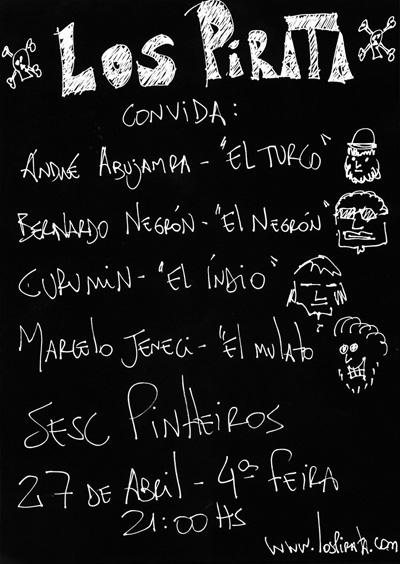 LOS PiRATA
CONViDA:
ANDRÉ ABUJAMRA - "EL TURCO"
BERNARDO NEGRÓN - "EL NEGRÓN"
CURUMIN - "EL ÍNDIO"
MARCELO JENECI - "EL MULATO
SESC PiNHEIROS
27 DE ABRiL - 4ª FEiRA
21:00 HS
www.lospirata.com